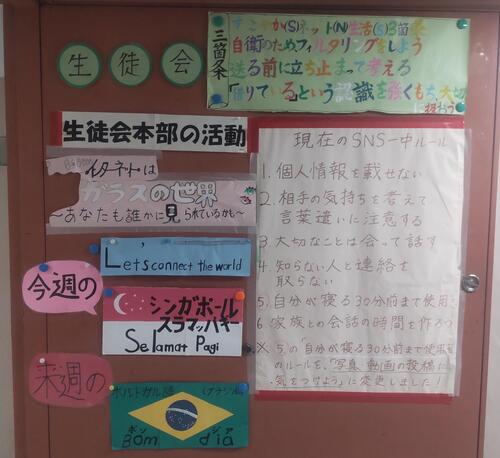 生徒会
三箇条
すこやか(S)ネット(N)生活(S)3箇条
自衛のためフィルタリングをしよう
送る前に立ち止まって考えろ
「借りている」という認識を強くもち、大切に
扱おう
生徒会本部の活動
インターネットは
ガラスの世界
～あなたも誰かに見られているかも～
Let's connect the world
今週の
シンガポール
スラマッパギー
Selamat Pagi
来週の
ポルトガル語 (ブラジル)
ボン ジア
Bom dia
現在のSNS一中ルール
1. 個人情報を載せない
2. 相手の気持ちを考えて
言葉遣いに注意する
3. 大切なことは会って話す
4. 知らない人と連絡を
取らない
5. 自分が寝る30分前まで使用
6. 家族との会話の時間を作ろう
※ 5の「自分が寝る30分前まで使用
のルールを、「写真、動画の投稿に
気をつけよう」に変更しました!